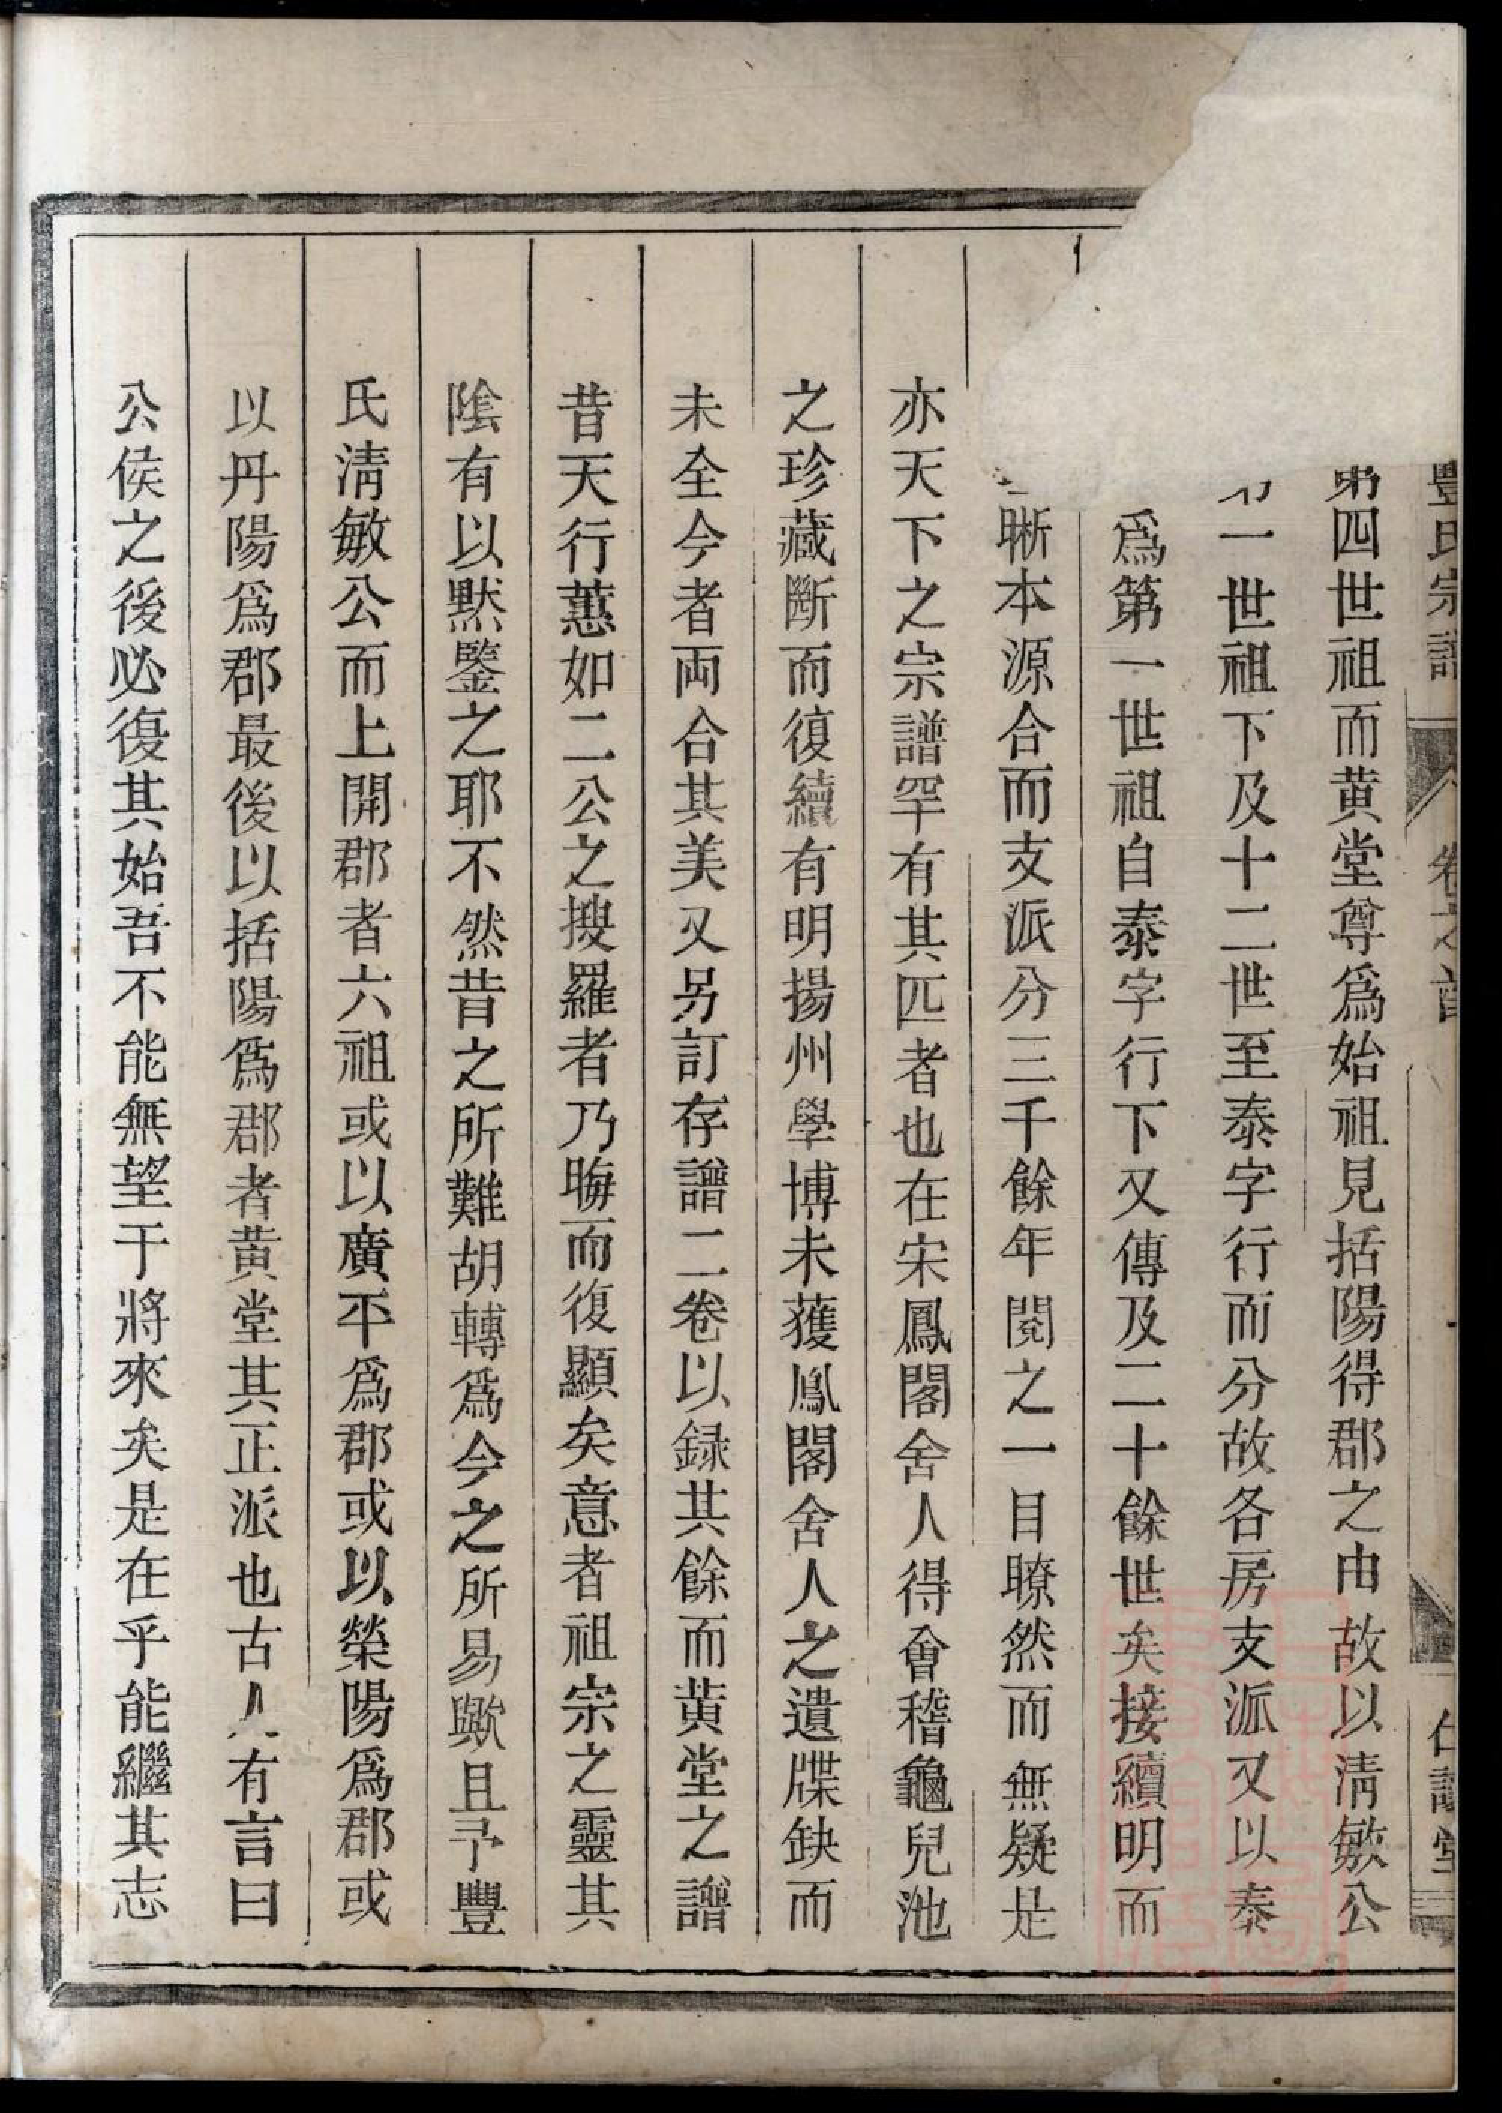 豐氏宗譜 卷之首 仁讓堂
第四世祖而黃堂尊爲始祖見括陽得郡之由故以淸敏公
一世祖下及十二世至泰字行而分故各房支派又以泰
爲第一世祖自泰字行下又傳及二十餘世矣接續明而
晰本源合而支派分三千餘年閱之一目瞭然而無疑是
亦天下之宗譜罕有其匹者也在宋鳳閣舍人得會稽龜兒池
之珍藏斷而復續有明揚州學博未獲鳳閣舍人之遺牒缺而
未全今者両合其美又另訂存譜二卷以録其餘而黃堂之譜
昔天行蕙如二公之搜羅者乃晦而復顯矣意者祖宗之靈其
隂有以默鑒之耶不然昔之所難胡轉爲今之所易歟且予豐
氏淸敏公而上開郡者六祖或以廣平爲郡或以榮陽爲郡或
以丹陽爲郡最後以括陽爲郡者黃堂其正派也古人有言曰
公侯之後必復其始吾不能無望于將來矣是在乎能繼其志